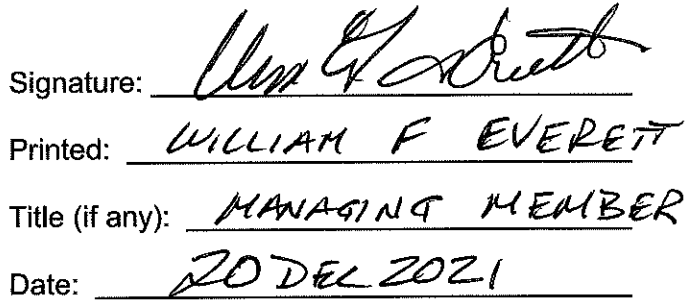 Signature:
Printed: WILLIAM F EVERETT
Title (if any): MANAGING MEMBER
Date: 20 DEC 2021